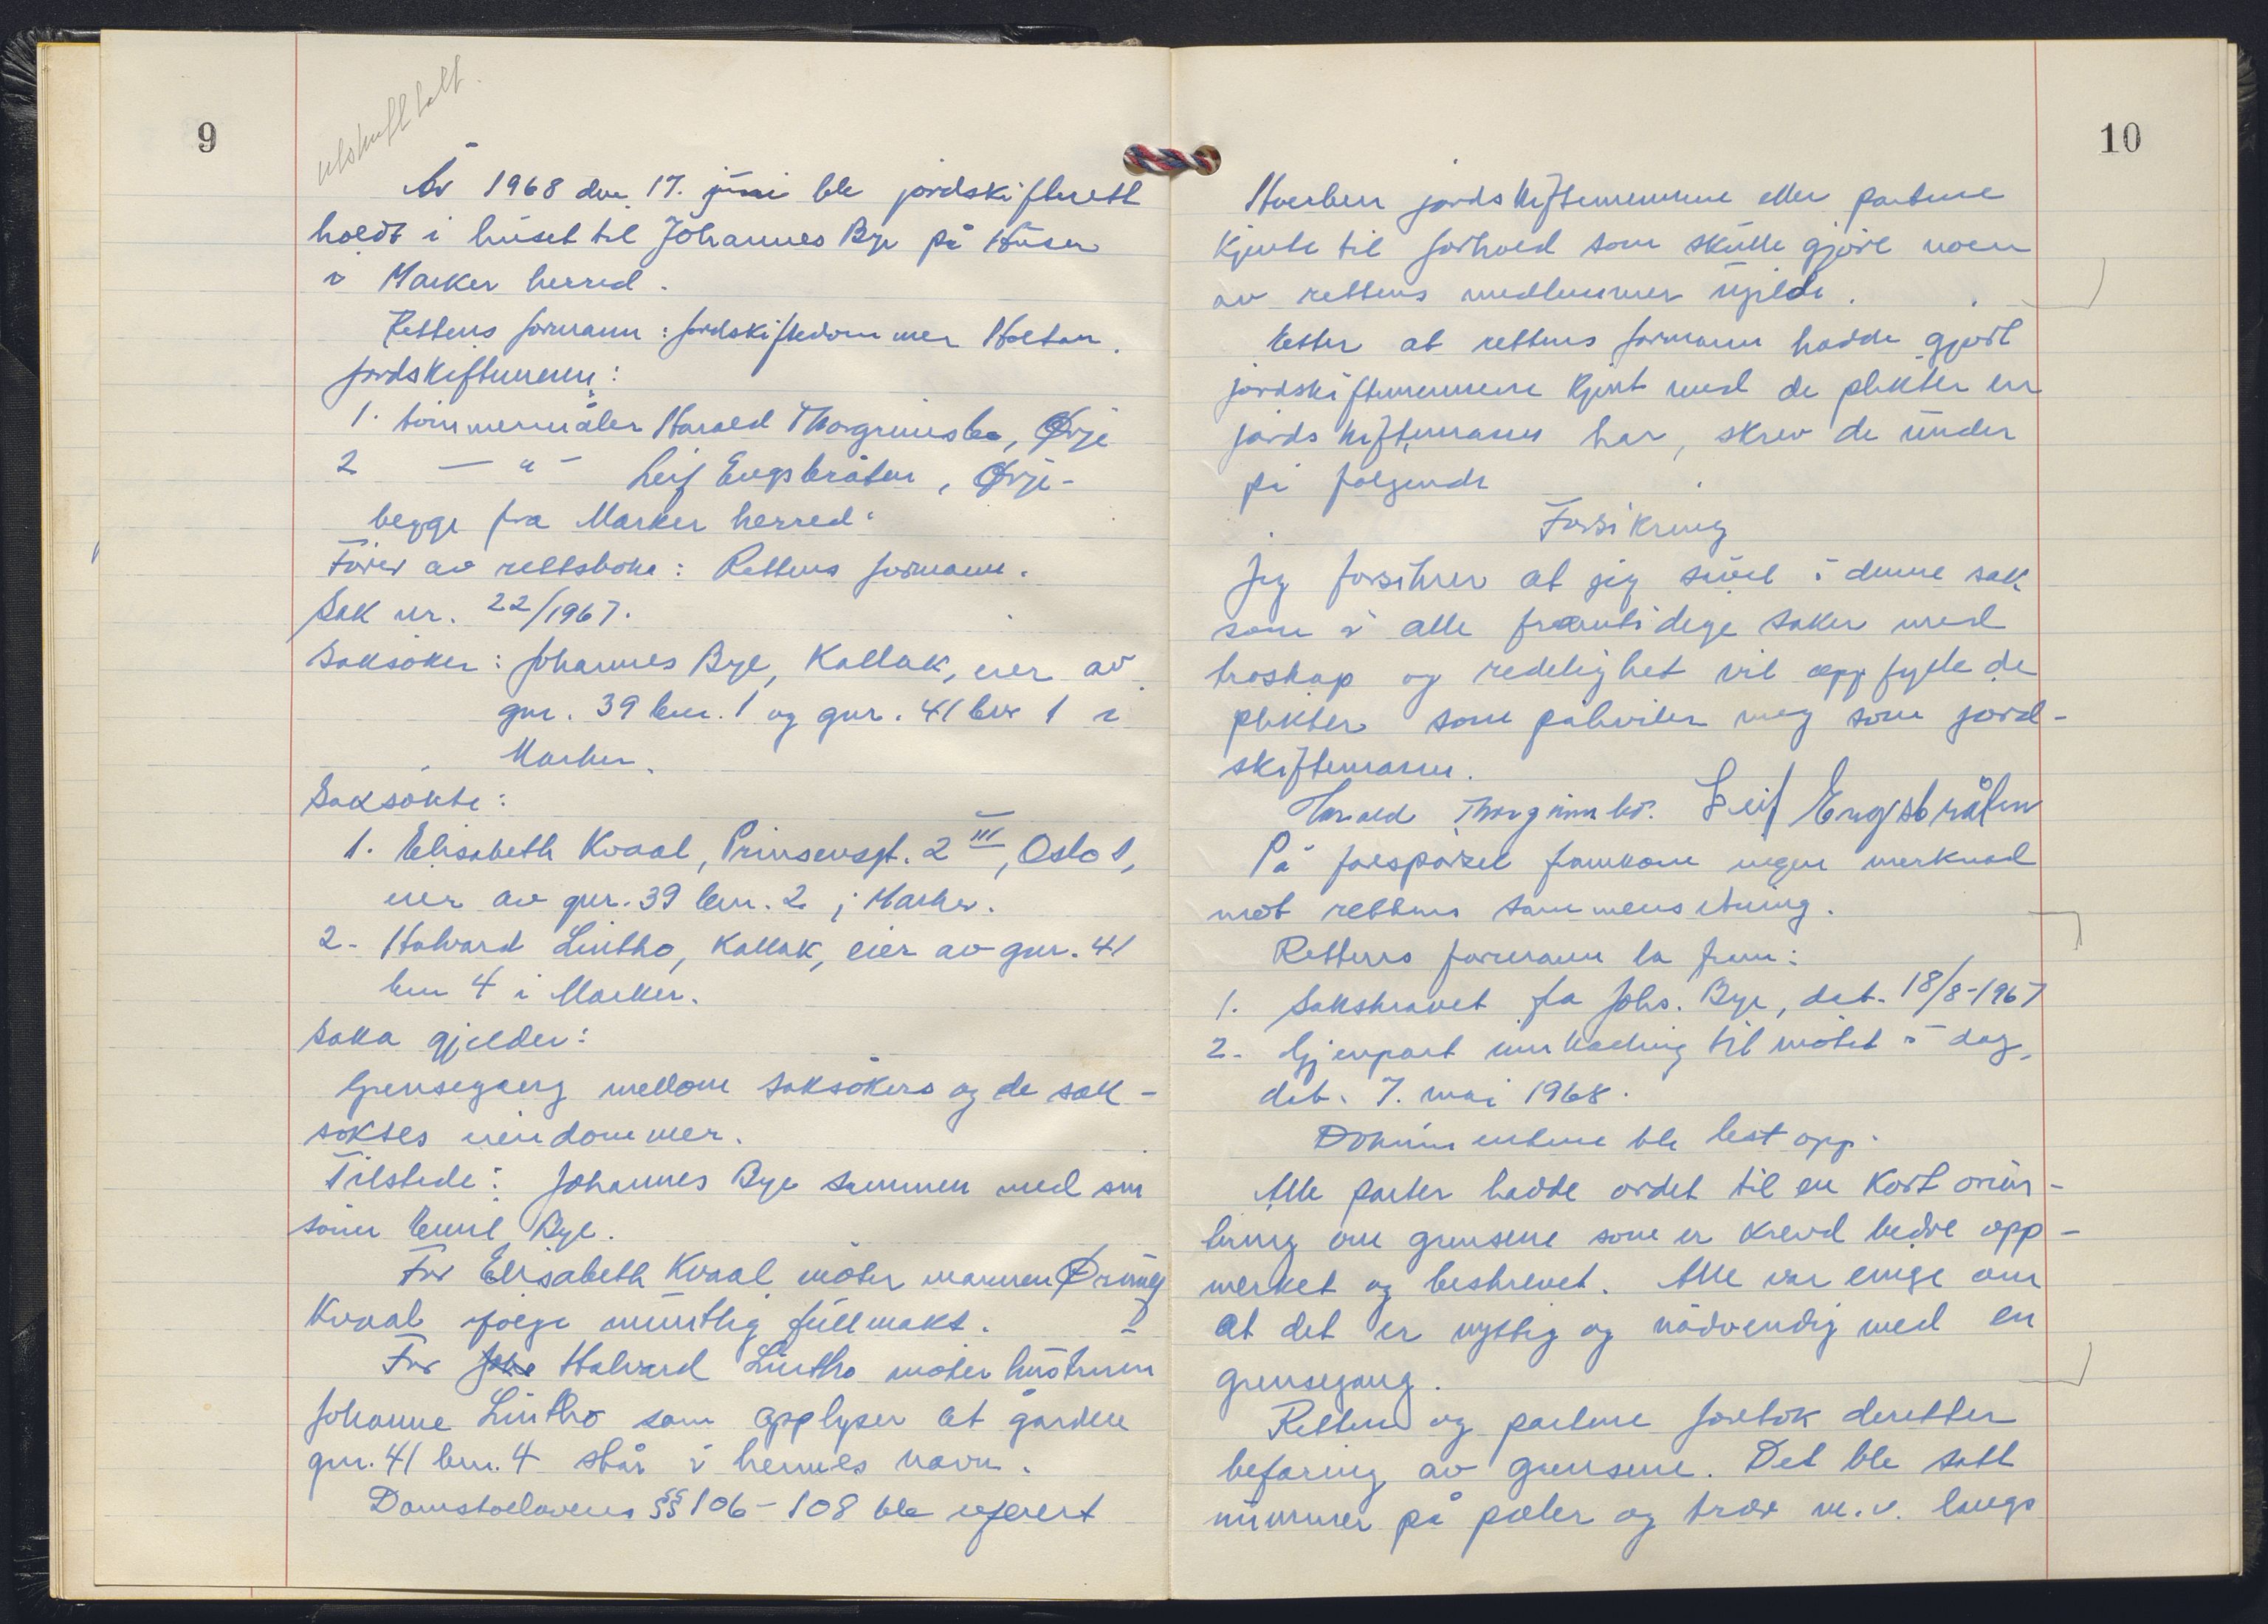 9
År 1968 den 17. juni ble jordskifterett
holdt i huset til Johannes Bye på Huser
i Marker herred.
Rettens formann: Jordskiftedommer Holtan.
Jordskiftemenn:
1. tömmermåler Harald Thorgrimsbø, Ørje
2 — " — Leif Engsbråten, Ørje -
begge fra Marker herred.
Förer av rettsboka: Rettens formann.
Sak nr. 22/1967.
Saksöker: Johannes Bye, Kallak, eier av
gnr. 39 bnr. 1 og gnr. 41 bnr 1 i
Marker.
Saksökte:
1. Elisabeth Kvaal, Prinsensgt. 2 III, Oslo 1,
eier av gnr. 39 bnr. 2 i Marker.
2. Halvard Lintho, Kallak, eier av gnr. 41
bnr 4 i Marker.
Saka gjelder:
Grensegang mellom saksökers og de sak-
söktes eiendommer.
Tilstede: Johannes Bye sammen med sin
sönn Emil Bye.
For Elisabeth Kvaal möter mannen
Kvaal ifölge muntlig fullmakt.
For Halvard Lintho möter hustruen
Johanne Lintho som opplyser at gården
gnr. 41 bnr. 4 står i hennes navn.
Domstollovens §§ 106 - 108 ble referert
10
Hverken jordskiftemennene eller partene
kjente til forhold som skulle gjöre noen
av rettens medlemmer ugilde.
Etter at rettens formann hadde gjort
jordskiftemennene kjent med de plikter en
jordskiftemann har, skrev de under
på fölgende
Forsikring
Jeg forsikrer at jeg såvel i denne sak
som i alle framtidige saker med
troskap og redelighet vil oppfylle de
plikter som påhviler meg som jord-
skiftemann.
Harald Thorgrimsbø. Leif Engsbråten
På forespörsel framkom ingen merknad
mot rettens sammensetning.
Rettens formann la fram:
1. Sakskravet fra Johs. Bye, dat. 18/8-1967
2. Gjenpart innkalling til mötet i dag,
dat. 7. mai 1968.
Dokumentene ble lest opp.
Alle parter hadde ordet til en kort orien-
tering om grensene som er krevd bedre opp-
merket og beskrevet. Alle var enige om
at det er nyttig og nödvendig med en
grensegang.
Retten og partene foretok deretter
befaring av grensene. Det ble satt
nummer på pæler og trær m.v. langs